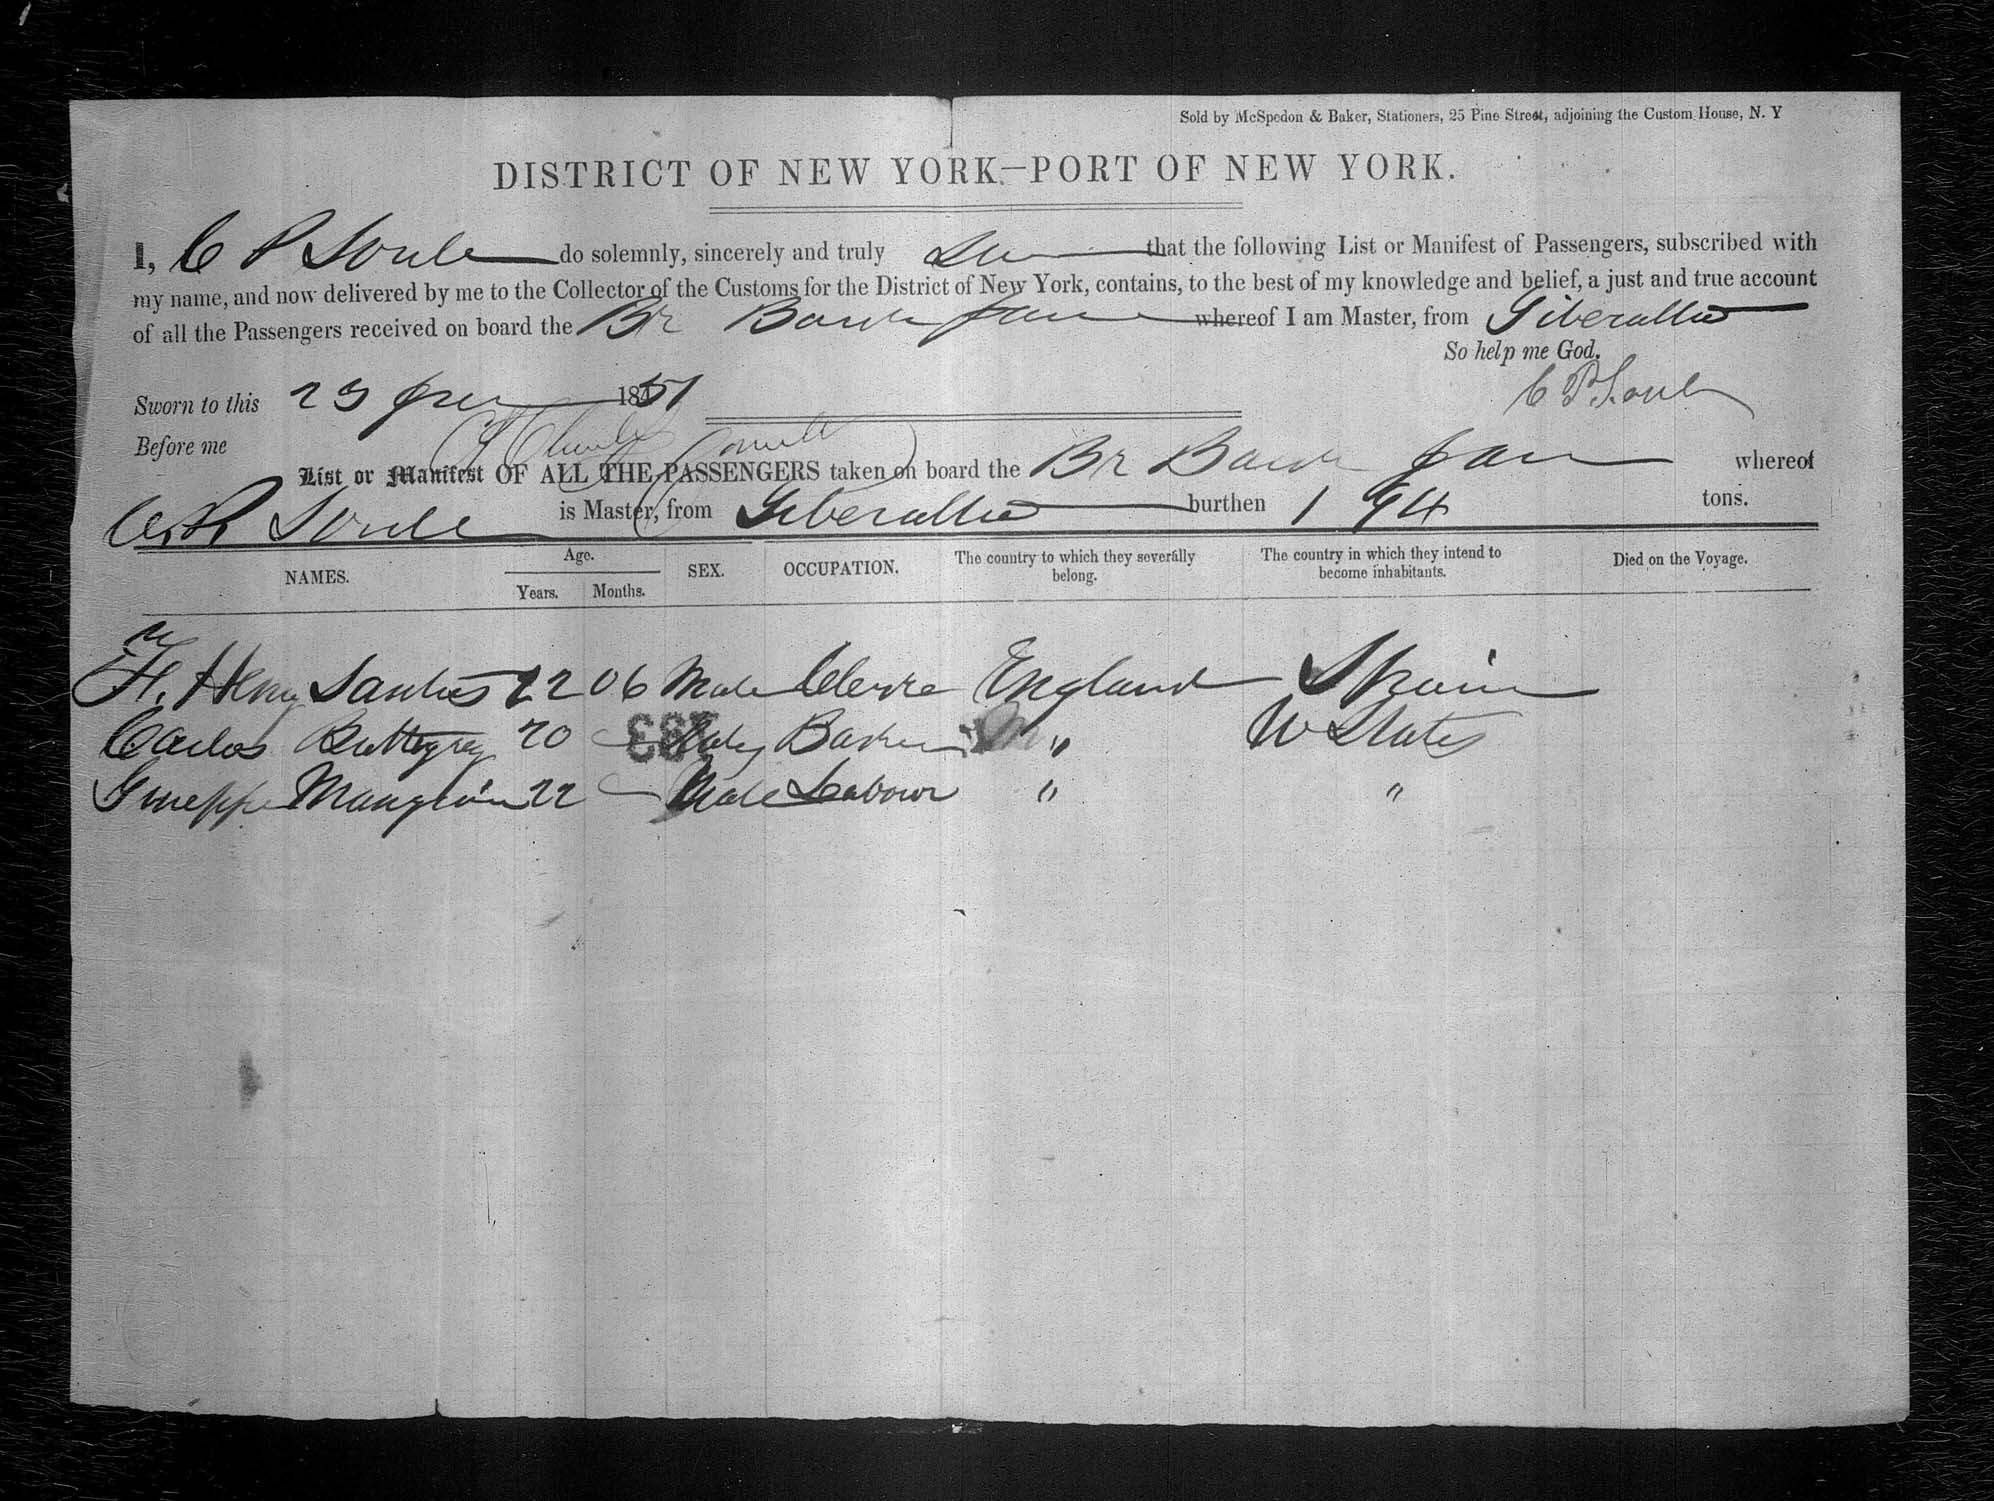 Sold by McSpedon & Baker, Stationers, 25 Pine Street, adjoining the Custom House, N. Y
DISTRICT OF NEW YORK.—PORT OF NEW YORK.
I, C P Soule do solemnly, sincerely and truly that the following List or Manifest of Passengers, subscribed with
my name, and now delivered by me to the Collector of the Customs for the District of New York, contains, to the best of my knowledge and belief, a just and true account
of all the Passengers received on board the Br Bark Jane whereof I am Master, from
So help me God.
Sworn to this 1851 C P Soule
Before me
List or Manifest OF ALL THE PASSENGERS taken on board the Br Bark Jane whereof
C. P. Soule is Master, from burthen 194 tons.
NAMES. Age. SEX. OCCUPATION. The country to which they severally belong. The country in which they intend to become inhabitants. Died on the Voyage.
Years. Months.
Henry 22 06 Male England Spain
Carlos 20 Baker " States
Mangion 22 Male Labour " "